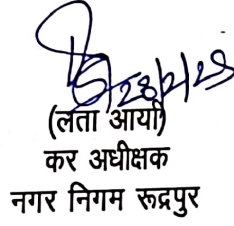 28/2/25
(लता आर्या)
कर अधीक्षक
नगर निगम रूद्रपुर